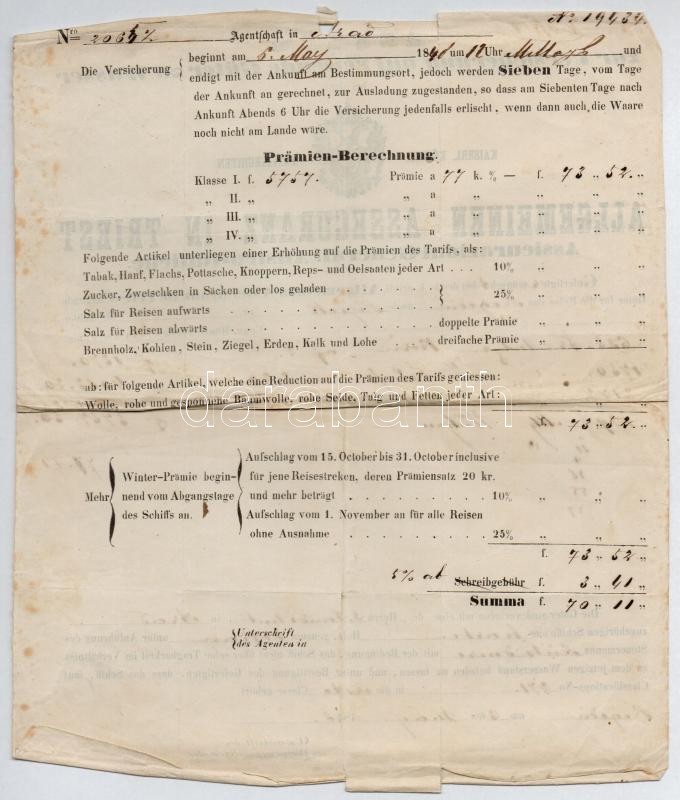 No. 19434.
Nro 20657. Agentschaft in Arad
Die Versicherung { beginnt am 6. May 1846 um 12 Uhr Mittags und
endigt mit der Ankunft am Bestimmungsort, jedoch werden Sieben Tage, vom Tage
der Ankunft an gerechnet, zur Ausladung zugestanden, so dass am Siebenten Tage nach
Ankunft Abends 6 Uhr die Versicherung jedenfalls erlischt, wenn dann auch die Waare
noch nicht am Lande wäre.
Prämien-Berechnung.
Klasse I. f. 5757. Prämie a 77 k. % — f. 73 „ 52. „
„ II. „ „ a „ „ „
„ III. „ „ a „ „ „
„ IV. „ „ a „ „ „
Folgende Artikel unterliegen einer Erhöhung auf die Prämien des Tarifs, als:
Tabak, Hanf, Flachs, Pottasche, Knoppern, Reps- und Oelsaaten jeder Art . . . 10% „ „ „
Zucker, Zwetschken in Säcken oder los geladen . . . . . . } 25% „ „ „
Salz für Reisen aufwärts . . . . . . . . . .
Salz für Reisen abwärts . . . . . . . . . . doppelte Prämie „ „ „
Brennholz, Kohlen, Stein, Ziegel, Erden, Kalk und Lohe . dreifache Prämie „ „ „
ab: für folgende Artikel, welche eine Reduction auf die Prämien des Tarifs geniessen:
Wolle, rohe und gesponnene Baumwolle, rohe Seide, Talg und Fetten jeder Art:
73 „ 52. „
Mehr { Winter-Prämie beginnend vom Abgangstage des Schiffs an. } { Aufschlag vom 15. October bis 31. October inclusive
für jene Reisestreken, deren Prämiensatz 20 kr.
und mehr beträgt . . . . . . . . 10% „ „ „
Aufschlag vom 1. November an für alle Reisen
ohne Ausnahme . . . . . . . . 25% „ „ „
f. 73 „ 52 „
5% ab Schreibgebühr f. 3 „ 41 „
Summa f. 70 „ 11 „
{ Unterschrift
des Agenten in
darabanth